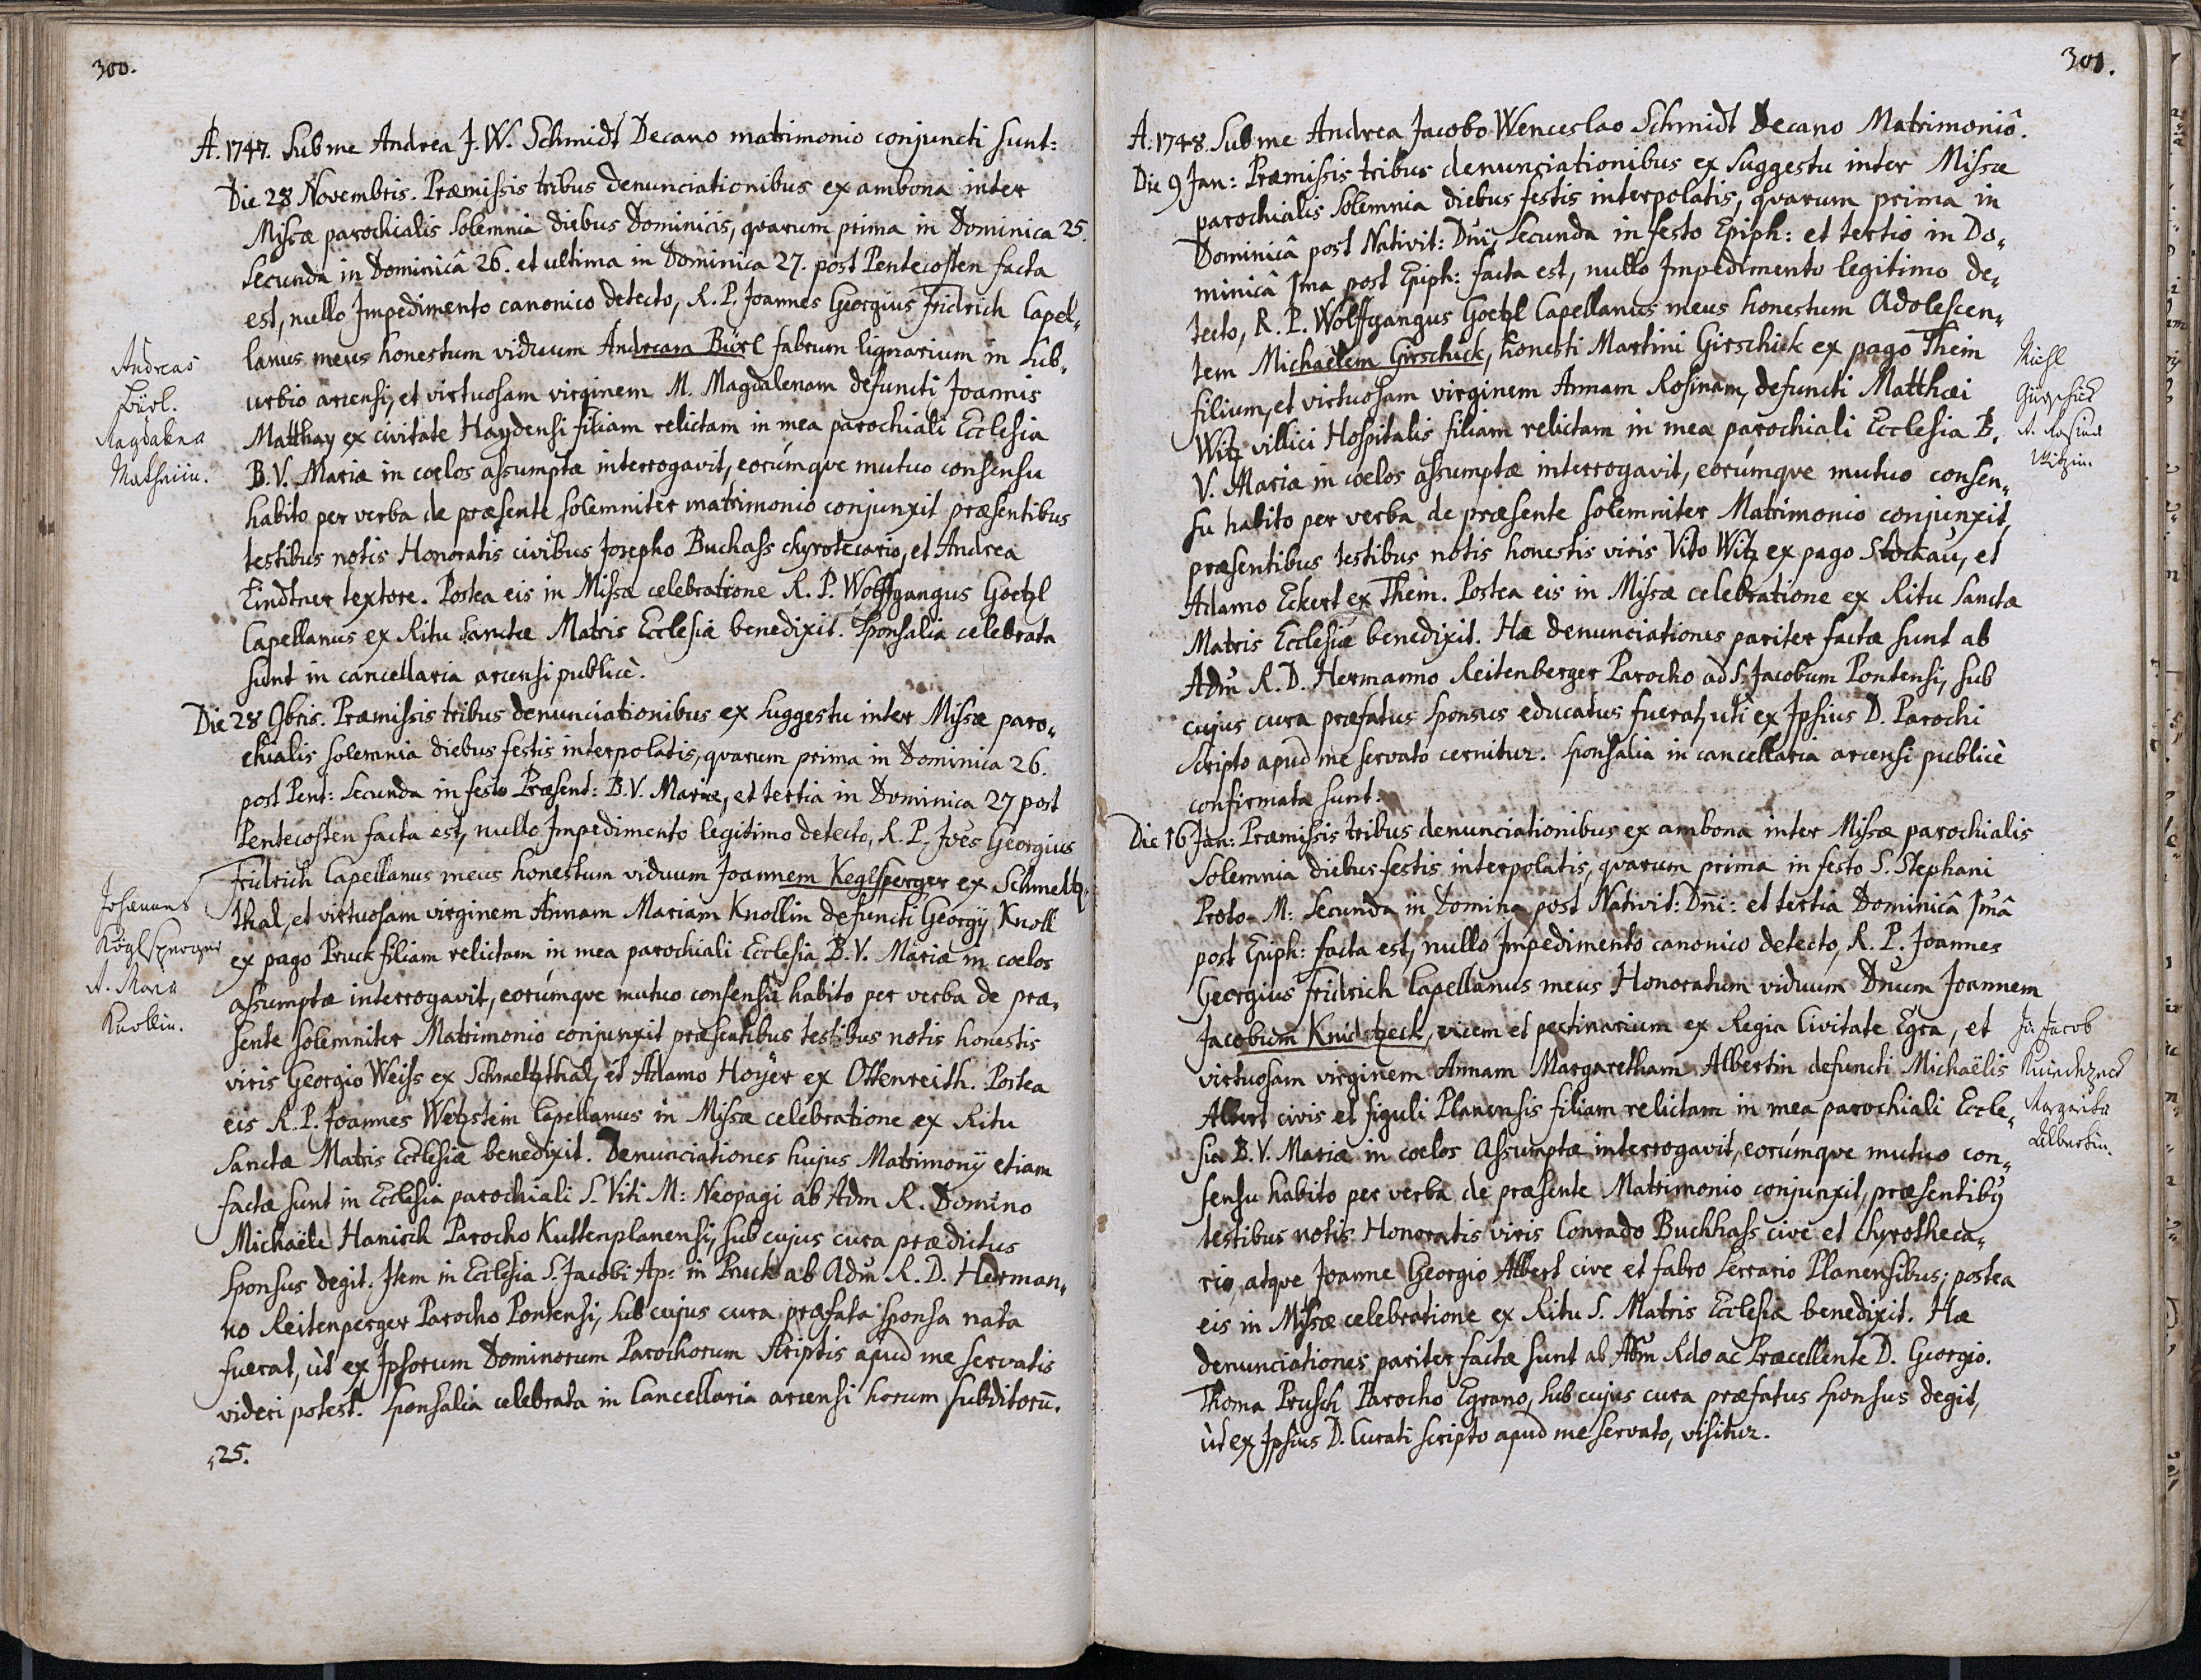 300.
A. 1747. Sub me Andrea J. W. Schmidt Decano matrimonio conjuncti sunt:
Die 28 Novembris. Præmissis tribus denunciationibus ex ambona inter
Missæ parochialis solemnia diebus Dominicis, quarum prima in Dominica 25.
secunda in Dominicâ 26. et ultima in Dominica 27. post Pentecosten facta
est, nullo Impedimento canonico detecto, R. P. Joannes Georgius Fridrich Capel„
lanus meus honestum viduum Andream Bürl fabrum lignarium in sub„
urbio arcensi, et virtuosam virginem M. Magdalenam defuncti Joannis
Matthay ex civitate Haydensi filiam relictam in mea parochiali Ecclesia
B. V. Mariæ in coelos assumptæ interrogavit, eorúmque mutuo consensu
habito per verba de præsente solemniter matrimonio conjunxit præsentibus
testibus notis Honoratis civibus Josepho Buchass chyrotecario, et Andrea
Lindtner textore. Postea eis in Missæ celebratione R. P. Wolffgangus Goetzl
Capellanus ex Ritu sanctæ Matris Ecclesiæ benedixit. Sponsalia celebrata
sunt in cancellaria arcensi publicè.
Andreas
Bürl.
Magdalena
Mathaiin.
Die 28 9bris. Præmissis tribus denunciationibus ex suggestu inter Missæ paro„
chialis solemnia diebus festis interpolatis, quarum prima in Dominica 26.
post Pent: secunda in festo Præsent: B. V. Mariæ, et tertia in Dominica 27 post
Pentecosten facta est, nullo Impedimento legitimo detecto, R. P. Joẽs Georgius
Fridrich Capellanus meus honestum viduum Joannem Keglsperger ex Schmeltz„
thal, et virtuosam virginem Annam Mariam Knollin defuncti Georgÿ Knoll
ex pago Pruck filiam relictam in mea parochiali Ecclesia B. V. Mariæ in coelos
assumptæ interrogavit, eorúmque mutuo consensu habito per verba de præ„
sente solemniter Matrimonio conjunxit præsentibus testibus notis honestis
viris Georgio Weiss ex Schmeltzthal, et Adamo Hoÿer ex Ottenreith. Postea
eis R. P. Joannes Wetzstein Capellanus in Missæ celebratione ex Ritu
Sanctæ Matris Ecclesiæ benedixit. Denunciationes hujus Matrimonÿ etiam
factæ sunt in Ecclesia parochiali S. Viti M: Neopagi ab Adm R. Domino
Michaële Hanisch Parocho Kuttenplanensi, sub cujus cura prædictus
sponsus degit. Item in Ecclesia S. Jacobi Ap: in Pruck ab Adm̃ R. D. Herman„
no Reitenperger Parocho Pontensi, sub cujus cura præfata sponsa nata
fuerat, ùt ex Ipsorum Dominorum Parochorum scriptis apud me servatis
videri potest. Sponsalia celebrata in Cancellaria arcensi horum subditorũ.
„25.
Johannes
Köglsperger
A. Maria
Knollin.
301.
A. 1748. Sub me Andrea Jacobo Wenceslao Schmidt Decano Matrimoniô.
Die 9 Jan: Præmissis tribus denunciationibus ex suggestu inter Missæ
parochialis solemnia diebus festis interpolatis, quarum prima in
Dominicâ post Nativit: Dnĩ, secunda in festo Epiph: et tertio in Do„
minicâ Ima post Epiph: facta est, nullo Impedimento legitimo de„
tecto, R. P. Wolffgangus Goetzl Capellanus meus honestum Adolescen„
tem Michaëlem Girschick, honesti Martini Girschick ex pago Thein
filium, et virtuosam virginem Annam Rosinam, defuncti Matthæi
Witz villici Hospitalis filiam relictam in mea parochiali Ecclesia B.
V. Mariæ in coelos assumptæ interrogavit, eorúmque mutuo consen„
su habito per verba de præsente solemniter Matrimonio conjunxit,
præsentibus testibus notis honestis viris Vito Witz ex pago Stockau, et
Adamo Eckert ex Thein. Postea eis in Missæ celebratione ex Ritu Sanctæ
Matris Ecclesiæ benedixit. Hæ denunciationes pariter factæ sunt ab
Adm̃ R. D. Hermanno Reitenberger Parocho ad S. Jacobum Pontensi, sub
cujus cura præfatus sponsus educatus fuerat, utì ex Ipsius D. Parochi
scripto apud me servato cernitur. Sponsalia in cancellaria arcensi publicè
confirmata sunt.
Michl
Girschick
A. Rosina
Witzin.
Die 16 Jan: Præmissis tribus denunciationibus ex ambona inter Missæ parochialis
solemnia diebus festis interpolatis, quarum prima in festo S. Stephani
Proto-M: secunda in Domina post Nativit: Dnĩ: et tertia Dominicâ Imâ
post Epiph: facta est, nullo Impedimento canonico detecto, R. P. Joannes
Georgius Fridrich Capellanus meus Honoratum viduum Dnum Joannem
Jacobum Knidtzeck, vicem et pectinarium ex Regia Civitate Egra, et
virtuosam virginem Annam Margaretham Albertin defuncti Michaëlis
Albert civis et figuli Planensis filiam relictam in mea parochiali Eccle„
sia B. V. Mariæ in coelos Assumptæ interrogavit, eorúmque mutuo con„
sensu habito per verba de præsente Matrimonio conjunxit, præsentibꝰ
testibus notis Honoratis viris Conrado Buchhass cive et chyrotheca„
rio, atque Joanne Georgio Albert cive et fabro serrario Planensibus; postea
eis in Missæ celebratione ex Ritu S. Matris Ecclesiæ benedixit. Hæ
denunciationes pariter factæ sunt ab Adm̃ Rdo ac Præcellente D. Georgio.
Thoma Prusch Parocho Egrano, sub cujus cura præfatus sponsus degit,
ùt ex Ipsius D. Curati scripto apud me servato, visitur.
Jo. Jacob
Margaretha
Albertin.